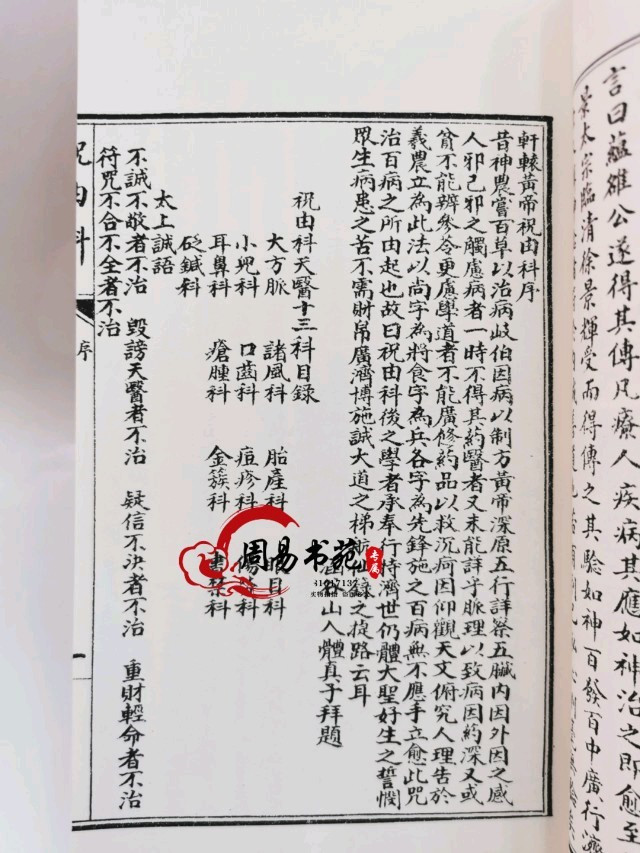 言曰蘊雖公遂得其傳凡療人疾病其應如神治之即愈至
宋太宗臨清徐景輝受而得傳之其驗如神百發百中廣行濟
軒轅黃帝祝由科序
昔神農嘗百草以治病岐伯因病以制方黃帝深原五行詳察五臟內因外因之感
人邪己邪之觸慮病者一時不得其約醫者又未能詳乎脈理以致病因約深又或
貧不能辨參苓更慮學道者不能廣修約品以救沉疴因仰觀天文俯究人理告於
義農立為此法以尚字為將食字為兵各字為先鋒施之百病無不應手立愈此咒
治百病之所由起也故曰祝由科後之學者承奉行持濟世仍體大聖好生之誓憫
眾生病患之苦不需財帛廣濟博施誠大道之梯航之捷路云耳
山人體真子拜題
祝由科天醫十三科目錄
大方脈 諸風科 胎產科 眼目科
小兒科 口齒科 痘疹科 傷科
耳鼻科 瘡腫科 金簇科 書禁科
砭鍼科
太上誠語
不誠不敬者不治 毀謗天醫者不治 疑信不決者不治 重財輕命者不治
符咒不合不全者不治
祝由科
序
一
周易书苑
专属